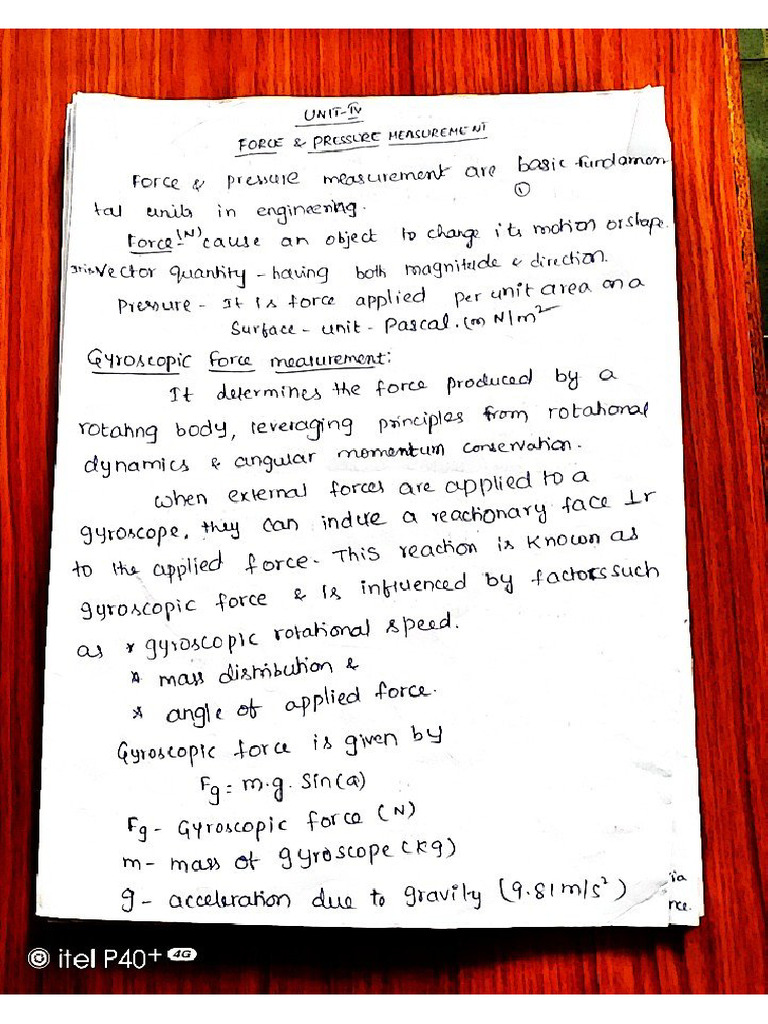 UNIT-IV
FORCE & PRESSURE MEASUREMENT
Force & pressure measurement are basic fundamen
①
tal units in engineering.
Force:-(N) cause an object to change its motion or shape.
Vector quantity - having both magnitude & direction.
Pressure - It is force applied per unit area on a
Surface - unit - Pascal. (or) N/m²
Gyroscopic force measurement:
It determines the force produced by a
rotating body, leveraging principles from rotational
dynamics & angular momentum conservation.
When external forces are applied to a
gyroscope, they can induce a reactionary face ⊥r
to the applied force. This reaction is known as
gyroscopic force & is influenced by factors such
as * gyroscopic rotational speed.
* mass distribution &
* angle of applied force.
Gyroscopic force is given by
Fg = m.g. Sin(a)
Fg - Gyroscopic force (N)
m - mass of gyroscope (kg)
g - acceleration due to gravity (9.81 m/s²)
nce.
itel P40+ 4G